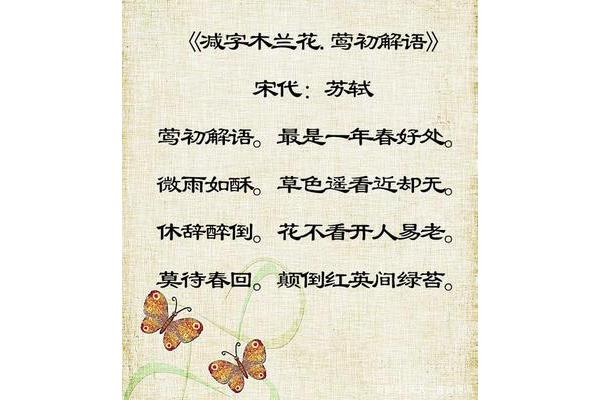 《减字木兰花.莺初解语》
宋代：苏轼
莺初解语。最是一年春好处。
微雨如酥。草色遥看近却无。
休辞醉倒。花不看开人易老。
莫待春回。颠倒红英间绿苔。